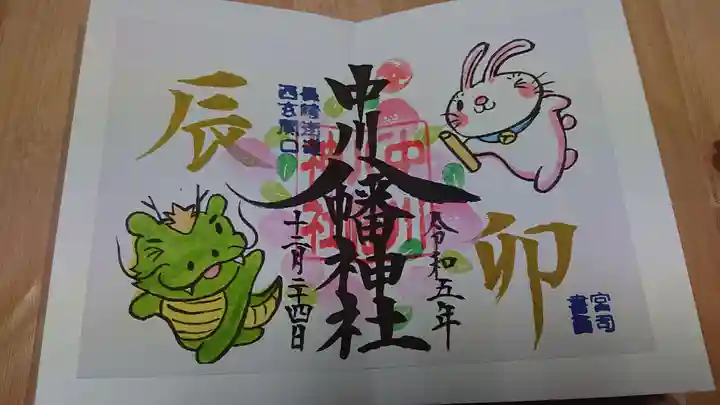 卯
令和五年
中川八幡神社
長崎街道
西玄関口
十二月二十四日
辰
中川
神社
宮司
書画